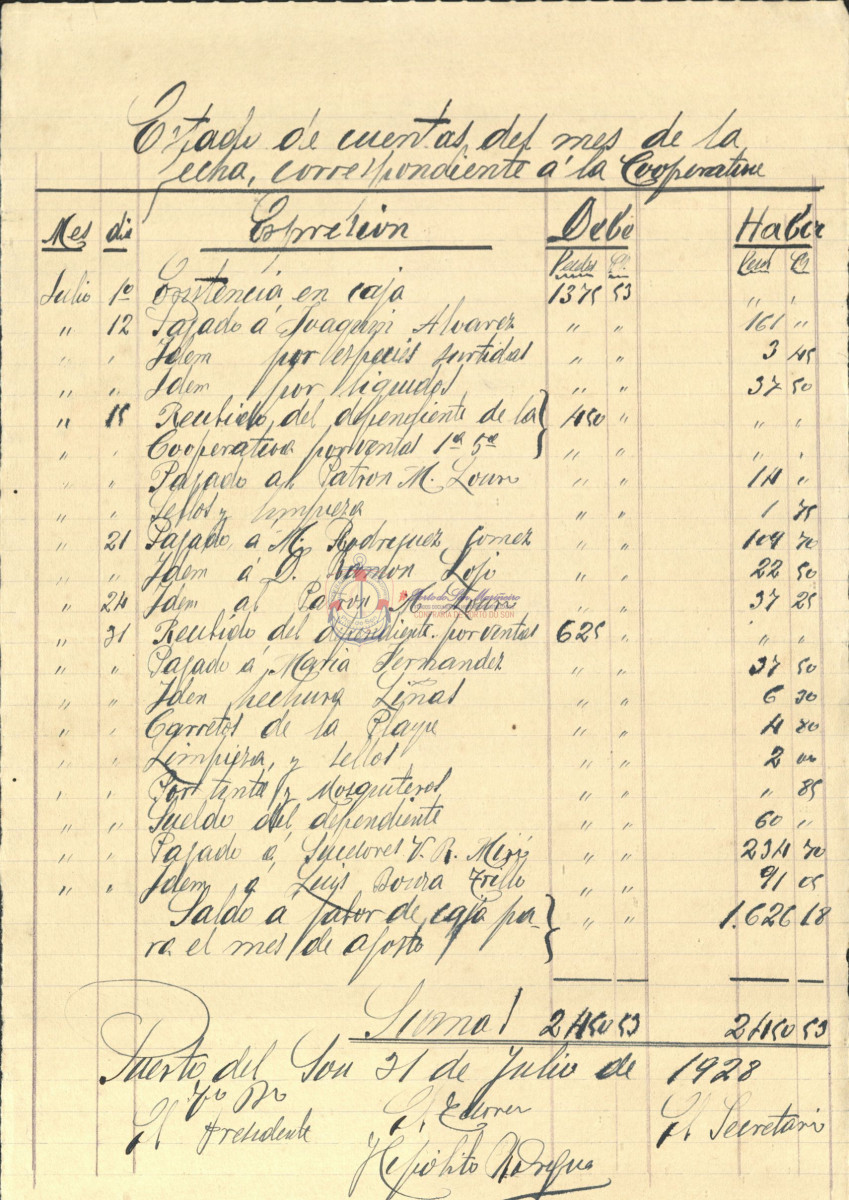 Estado de cuentas del mes de la
fecha, correspondiente á la Cooperativa
Mes dia Espresion Debe Haber
Pesetas Cs. Peset Cs
Julio 1º Existencia en caja 1375 53 " "
" 12 Pagado á Joaquin Alvarez " " 161 "
" " Idem por especies surtidas " " 3 45
" " Idem por liquidos " " 37 50
" 15 Recibido del dependiente de la 450 " " "
" " Cooperativa por ventas 1ª 5ª " " " "
" " Pagado al Patron M. Louro " " 14 "
" " Sellos y limpieza " " 1 75
" 21 Pagado á M. Rodriguez Gomez " " 109 70
" " Idem á D. Ramon Lojo " " 22 50
" 24 Idem al Patron M. Louro " " 37 25
" 31 Recibido del dependiente por ventas 625 " " "
" " Pagado á Maria Fernandez " " 37 50
" " Iden hechura Liñas " " 6 30
" " Carretos de la Playa " " 4 70
" " Limpieza, y sellos " " 2 00
" " Por tinta y Mosquiteros " " " 85
" " Sueldo del dependiente " " 60 "
" " Pagado á Sucesores V. R. Miró " " 234 70
" " Idem á Luis Bouza Trillo " " 91 05
Saldo á fabor de caja pa- " " 1.626 18
ra el mes de agosto
Sumas 2450 53 2450 53
Puerto del Son 31 de Julio de 1928
Vº Bº
El Presidente El Tesorero El Secretario
Hipolito Rodriguez
Porto do Son Mariñeiro
CONFRARÍA DE PORTO DO SON